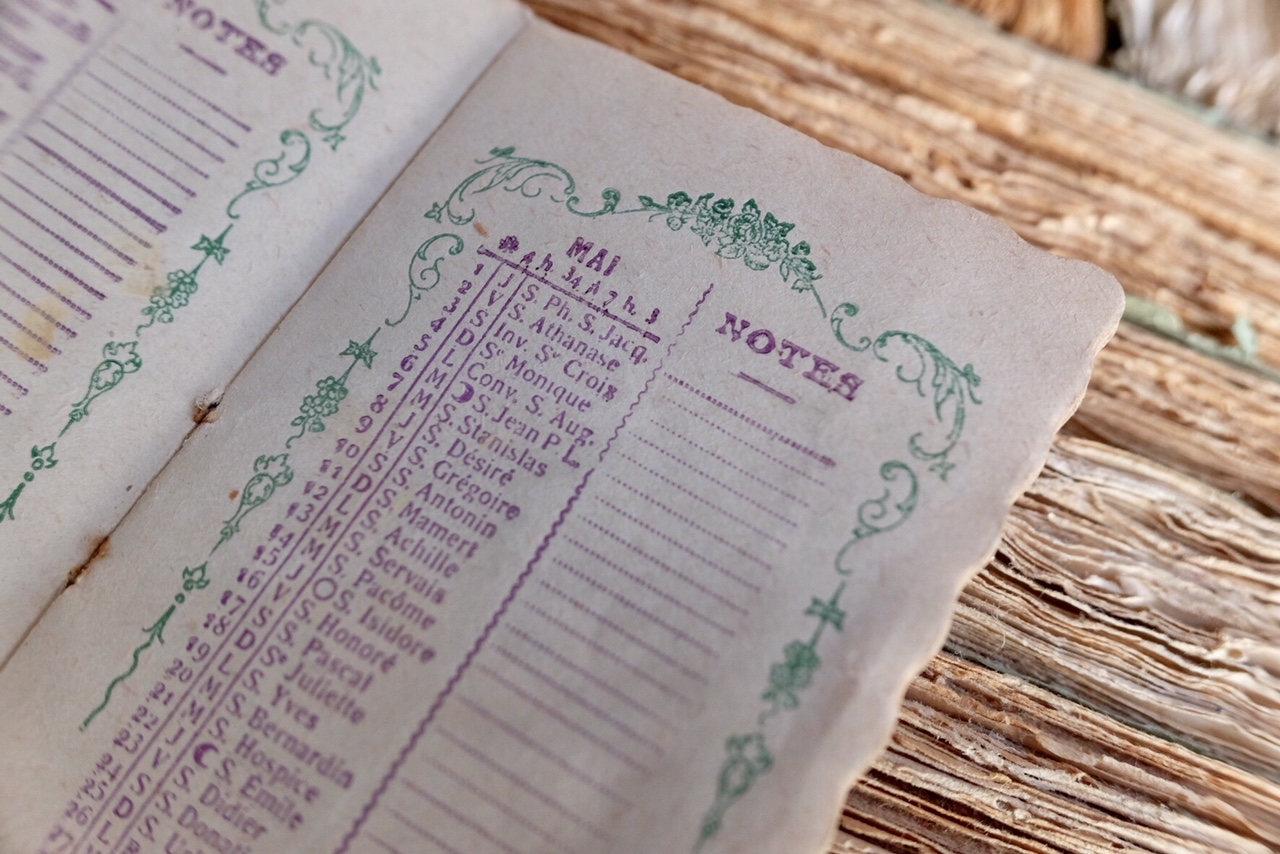 NOTES
MAI
4 h. 34 à 7 h. 9
NOTES
1 J S. Ph. S. Jacq.
2 V S. Athanase
3 S Inv. Sᵉ Croix
4 D Sᵉ Monique
5 L Conv. S. Aug.
6 M S. Jean P L.
7 M S. Stanislas
8 J S. Désiré
9 V S. Grégoire
10 S S. Antonin
11 D S. Mamert
12 L S. Achille
13 M S. Servais
14 M S. Pacôme
15 J S. Isidore
16 V S. Honoré
17 S S. Pascal
18 D Sᵉ Juliette
19 L S. Yves
20 M S. Bernardin
21 M S. Hospice
22 J S. Émile
23 V S. Didier
24 S S.
25 D S.
26 L
27